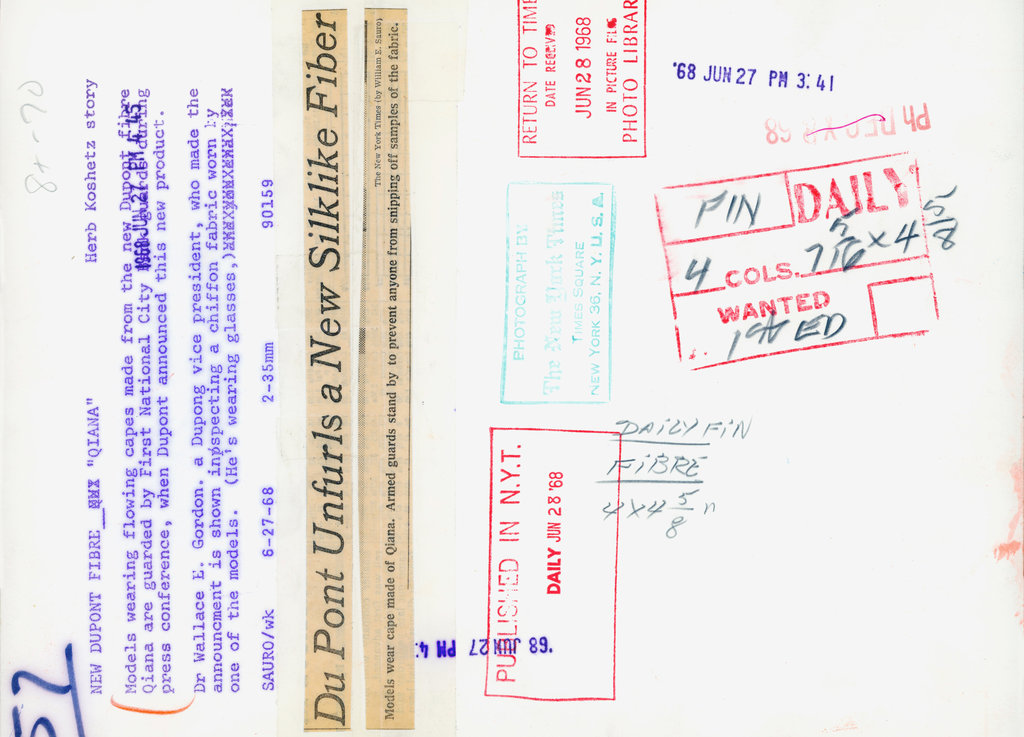 52
84-70
NEW DUPONT FIBRE "QIANA" Herb Koshetz story
Models wearing flowing capes made from the new Dupont fibre
Qiana are guarded by First National City Bank guards during
press conference, when Dupont announced this new product.
1968 JUN 27 PM 4 43
Dr Wallace E. Gordon. a Dupong vice president, who made the
announcment is shown inspecting a chiffon fabric worn by
one of the models. (He's wearing glasses,)
SAURO/wk 6-27-68 2-35mm 90159
Du Pont Unfurls a New Silklike Fiber
The New York Times (by William E. Sauro)
Models wear cape made of Qiana. Armed guards stand by to prevent anyone from snipping off samples of the fabric.
'68 JUN 27 PM 4:
RETURN TO TIME
DATE RECEIVED
JUN 28 1968
IN PICTURE FILE
PHOTO LIBRAR
PHOTOGRAPH BY
The New York Times
TIMES SQUARE
NEW YORK 36, N. Y. U. S. A.
PUBLISHED IN N.Y.T.
DAILY JUN 28 '68
'68 JUN 27 PM 3:41
FIN DAILY
4 COLS. 7 5/16 x 4 5/8
WANTED
DAILY FIN
FIBRE
4 x 4 5/8 n